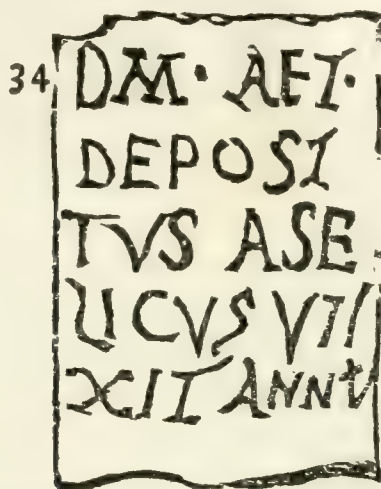 34
DM · AFI ·
DEPOSI
TVS ASE
UCVS VII
XII ANNV